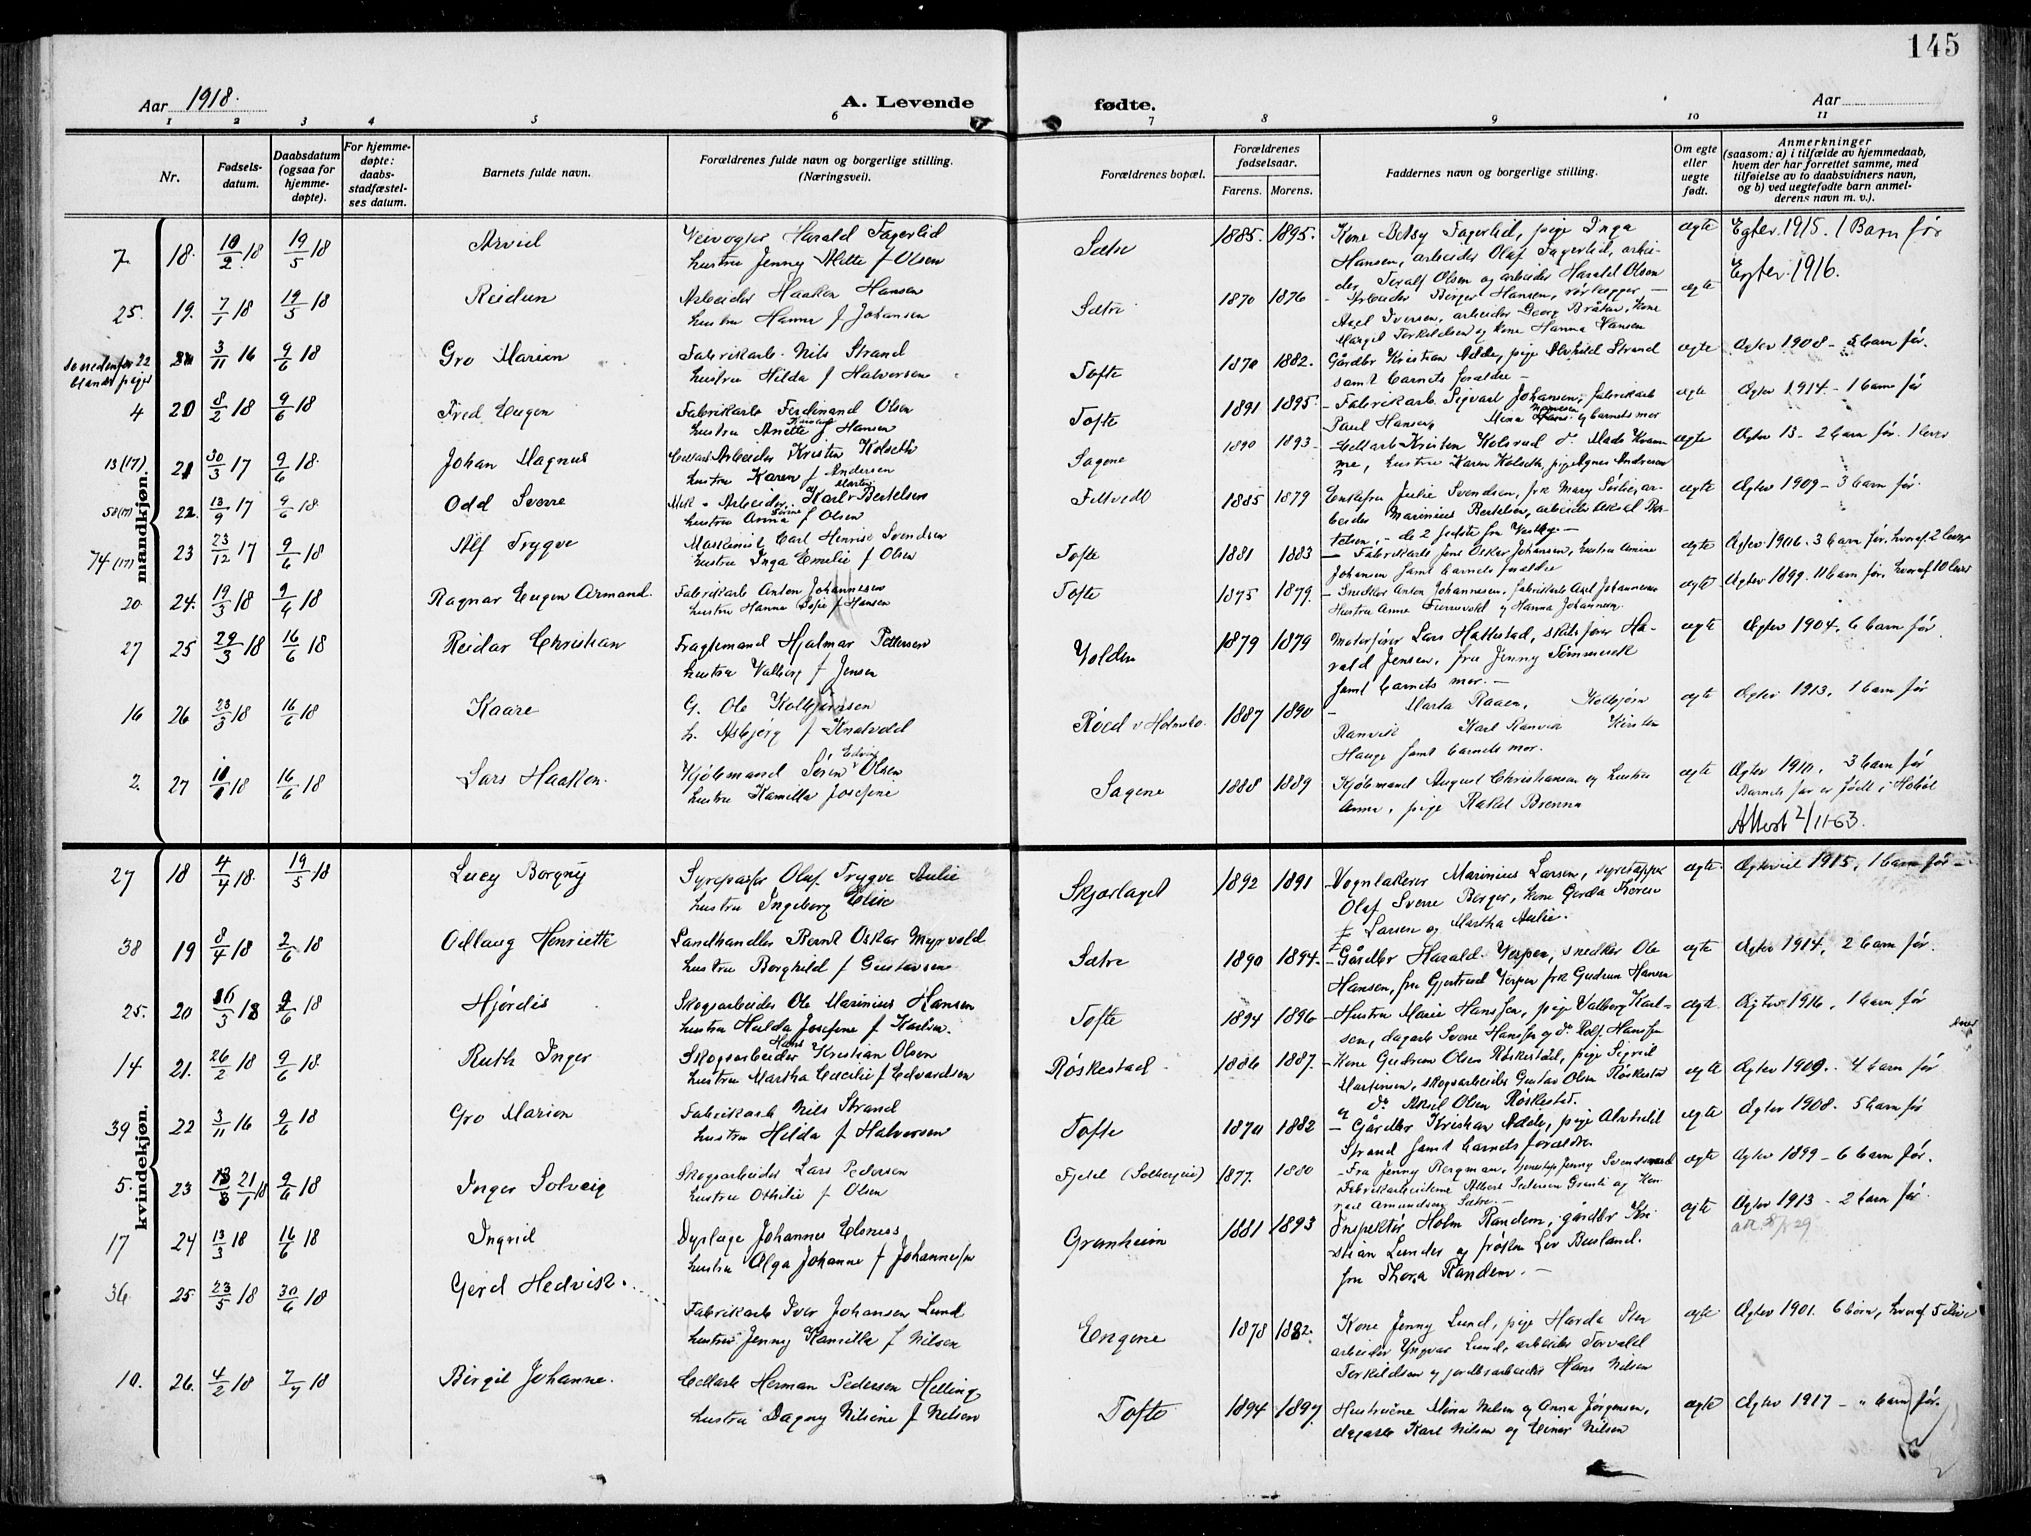 145
Aar 1918.
A. Levende fødte.
Aar
1 2 3 4 5 6 7 8 9 10 11
Nr.
Fødselsdatum.
Daabsdatum (ogsaa for hjemmedøpte).
For hjemmedøpte: daabsstadfæstelses datum.
Barnets fulde navn.
Forældrenes fulde navn og borgerlige stilling. (Næringsvei).
Forældrenes bopæl.
Forældrenes fødselsaar.
Farens. Morens.
Faddernes navn og borgerlige stilling.
Om egte eller uegte født.
Anmerkninger (saasom: a) i tilfælde av hjemmedaab, hvem der har forrettet samme, med tilføielse av to daabsvidners navn, og b) ved uegtefødte barn anmelderens navn m. v.).
mandkjøn.
7 18. 10/2 18 19/5 18 Arvid Veivogter Harald Fagerlid Sætre 1885. 1895. Kone Betsy Fagerlid, pige Inga egte Egtev. 1915. 1 Barn før
hustru Jenny Mette f Olsen Hansen, arbeider Olaf Fagerlid, arbei-
der Toralf Olsen og arbeider Harald Olsen
25. 19. 7/1 18 19/5 18 Reidun Arbeider Haaken Hansen Sætre 1870 1876 - Arbeider Birger Hansen, rørlægger egte Egtev. 1916.
hustru Hanna f Johansen Axel Iversen, arbeider Georg Bråten, kone
Margit Torkildsen og kone Hanna Hansen
se nedenfor 22 blandt piger 3/11 16 9/6 18 Gro Marion Fabrikarb. Nils Strand Tofte 1870 1882. Gårdbr Kristian Adde, pige Alvhild Strand egte Ægtev 1908 - 5 barn før.
hustru Hilda f Halvorsen samt barnets forældre -
4 20 8/2 18 9/6 18 Fred Eugen Fabrikarb Ferdinand Olsen Tofte 1891 1895 - Fabrikarb. Sigvart Johansen, fabrikarb egte Ægtev 1914 - 1 barn før
hustru Anette f Hansen Paul Hansen, Mina og barnets mor
13 (17) 21 30/3 17 9/6 18. Johan Magnus Arbeider Kristen Kolseth Sagene 1890 1893 Kristen Kolsrud egte Ægtev 13 - 2 barn før. 1 lever
hustru Karen f Andersen hustru Karen Kolseth, pige Agnes Andresen
58 (17) 22. 13/9 17 9/6 18. Odd Sverre Arbeider Karl Bertelsen Filtvedt 1885 1879 Enkefru Julie Svendsen, frk Mary Sørlie, ar- egte Ægtev 1909 - 3 barn før.
hustru Anna f Olsen beider Marinius Bertelsen, arbeider Aksel Ber-
telsen, - de 2 sidste fra Vestby. -
74 (17) 23 23/12 17 9/6 18 Alf Trygve Maskinist Carl Henrik Svendsen Tofte 1881 1883 - Fabrikarb Oskar Johansen, hustru Amine egte Ægtev 1906. 3 barn før, hvoraf 2 lever
hustru Inga Emelie f Olsen Johansen samt barnets forældre
20. 24. 19/3 18 9/6 18 Ragnar Eugen Armand. Fabrikarb Anton Johannesen Tofte 1875 1879. - Snedker Anton Johannesen, fabrikarb Axel Johannesen egte Ægtev 1899. 11 barn før, hvoraf 10 lever
hustru Hanna Sofie f Hansen Hustru Anne og Hanna Johannesen
27 25 29/3 18 16/6 18 Reidar Christian Fragtemand Hjalmar Pettersen Volden 1879 1879 Motorfører Lars Hallestad, skibsfører Ha- egte Ægtev 1904, 6 barn før.
hustru Valborg f Jensen rald Jensen, fru Jenny Tømmerek
samt barnets mor. -
16 26 23/3 18 16/6 18 Kaare G. Ole Kolbjørnsen Røed v Holmsbo. 1887 1890 - Marta Raaen, Kolbjørn egte Ægtev 1913, 1 barn før
h. Asbjørg f Knatvold Ranvik Karl Ranvik Kirsten
Hauge samt barnets mor.
2. 27 18 16/6 18 Lars Haaken. Kjøbmand Søren Edvin Olsen Sagene 1888 1889 Kjøbmand August Christiansen og hustru egte Ægtev 1910. 3 barn før
hustru Kamilla Josefine Anna, pige Rakel Brenna Barnets far er født i Hobøl
Attest 2/11-63.
kvindekjøn.
27 18 4/4 18. 19/5 18 Lucy Borgny Olaf Trygve Aulie Skjærlaget 1892 1891 - Vognlakerer Marinius Larsen, syretapper egte Ægteviet 1915, 1 barn før -
hustru Ingeborg Elise Olaf Sverre Berger, kone Gerda Thorese
f Larsen og Martha Aulie.
38 19 8/4 18 2/6 18 Odlaug Henriette Landhandler Bernt Oskar Myrvold Sætre 1890 1894 - Gårdbr Harald Vesper, snedker Ole egte Ægtev 1914, 2 barn før.
hustru Borghild f Gustavsen Hansen, fru Gjertrud Vesper frk Gudrun Hansen
25. 20 16/3 18 9/6 18 Hjørdis Skogsarbeider Ole Marinius Hansen Tofte 1894 1896 - Hustru Marie Hanssen, pige Valborg Karl- egte Ægtev. 1916, 1 barn før
hustru Hulda Josefine f Karlsen. sen, dagarb Sverre Hanssen og do Rolf Hanssen
14 21. 26/2 18 9/6 18. Ruth Inger Skogsarbeider Hans Kristian Olsen Røskestad. 1886 1887. - Kone Gudrun Olsen Røskestad, pige Sigrid egte Ægtev 1909. 4 barn før
hustru Martha Cecilie f Edvardsen Martinsen, skogsarbeider Gustav Olsen Røskestad
og do Aksel Olsen Røskestad.
39 22 3/11 16 9/6 18 Gro Marion Fabrikarb Nils Strand Tofte 1870 1882 - Gårdbr Kristian Adde, pige Alvhild egte Ægtev 1908. 5 barn før
hustru Hilda f Halvorsen Strand samt barnets forældre
5. 23 21/1 18 9/6 18 Inger Solveig Skogsarbeider Lars Pedersen Fjeld 1877. 1880 - Fru Jenny Bergman, Jenny Svendsrud egte Ægtev 1899 - 6 barn før.
hustru Othilie f Olsen Fabrikarbeiderne Albert Pedersen Granli og Kon-
rad Amundsen Sætre. -
17 24 13/3 18 16/6 18 Ingrid Dyrlæge Johannes Elsness Granheim 1881 1893 Inspektør Holm Randem, gårdbr Kri- egte Ægtev 1913 - 2 barn før.
hustru Olga Johanne f Johannessen stian Lunder og frøken Liv Busland.
fru Thora Randem. -
36 25 23/5 18 30/6 18 Gerd Hedvik. Fabrikarb Iver Johansen Lund Engene 1878 1882. Kone Jenny Lund, pige Harda Sten egte Ægtev 1901. 6 børn, hvoraf 5 ilive
hustru Jenny Kamilla f Nilsen arbeider Yngvar Lund, arbeider Torvald
Torkildsen og jordbrarbeider Hans Nilsen
10. 26. 4/2 18 7/7 18 Birgit Johanne. Cellarb Herman Pedersen Helling Tofte 1894 1897. Hustruerne Mina Nilsen og Anna Jørgensen, egte Ægtev 1917 - " barn før.
hustru Dagny Nilsine f Nilsen dagarb Karl Nilsen og Einar Nilsen